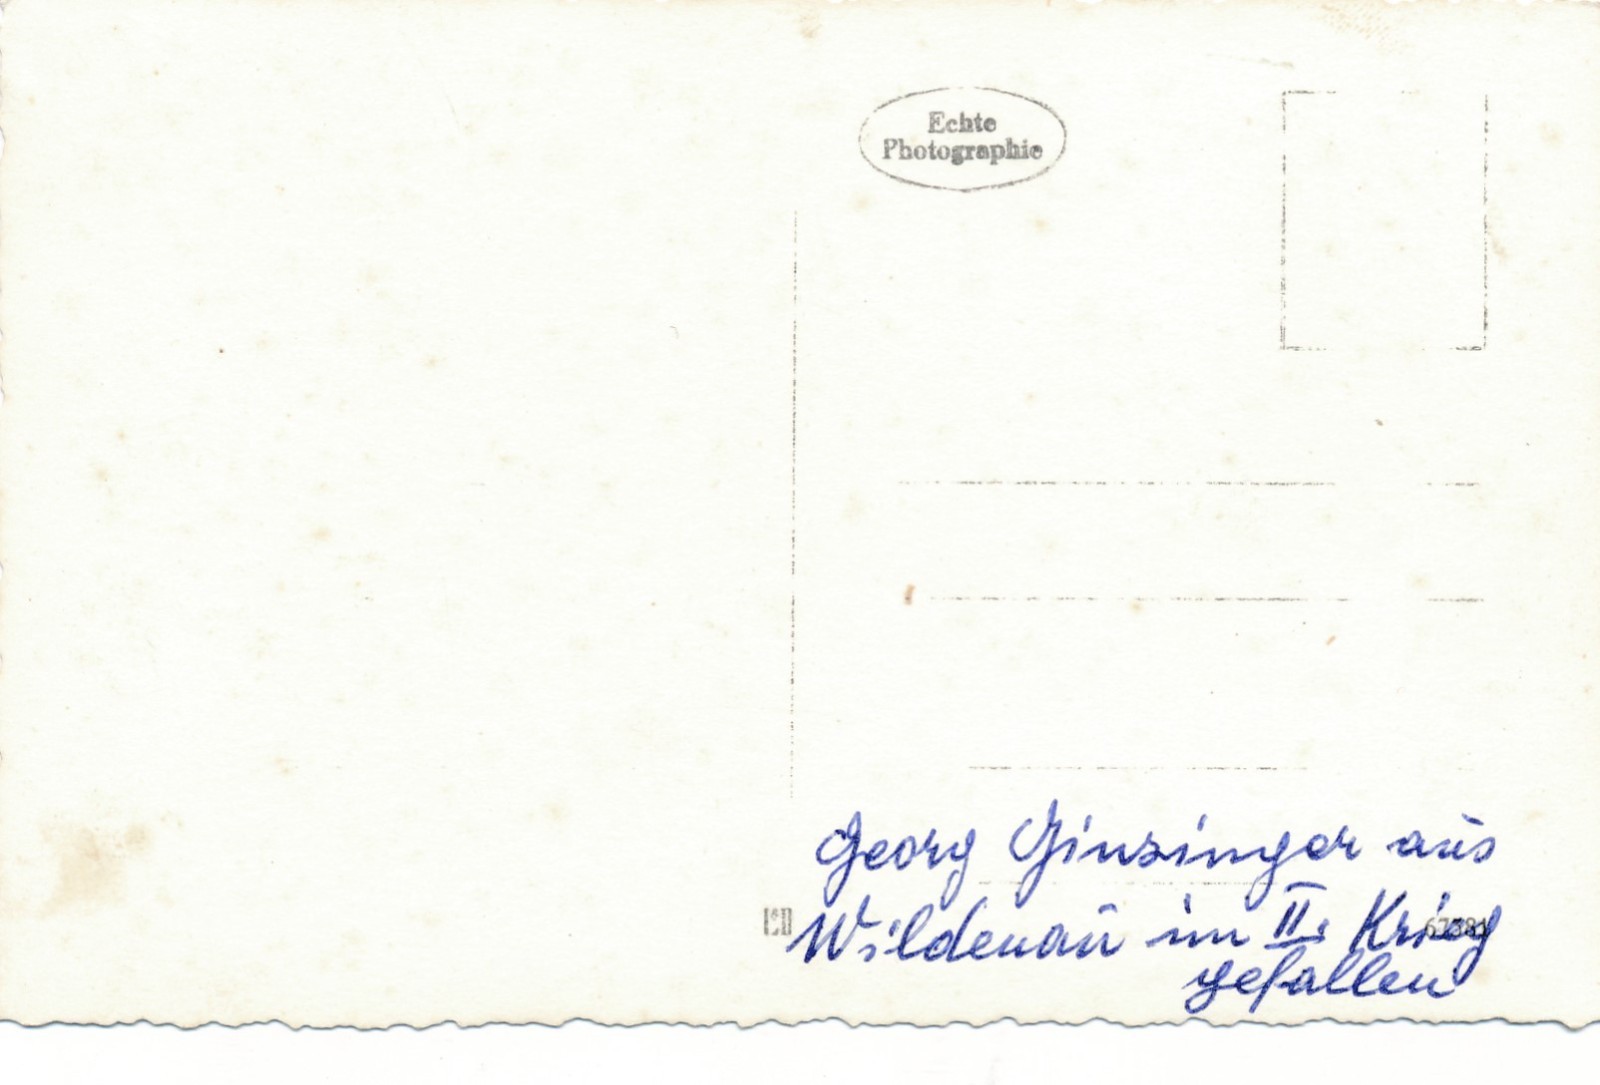 Echte
Photographie
Georg Ginzinger aus
Wildenau im II. Krieg
gefallen